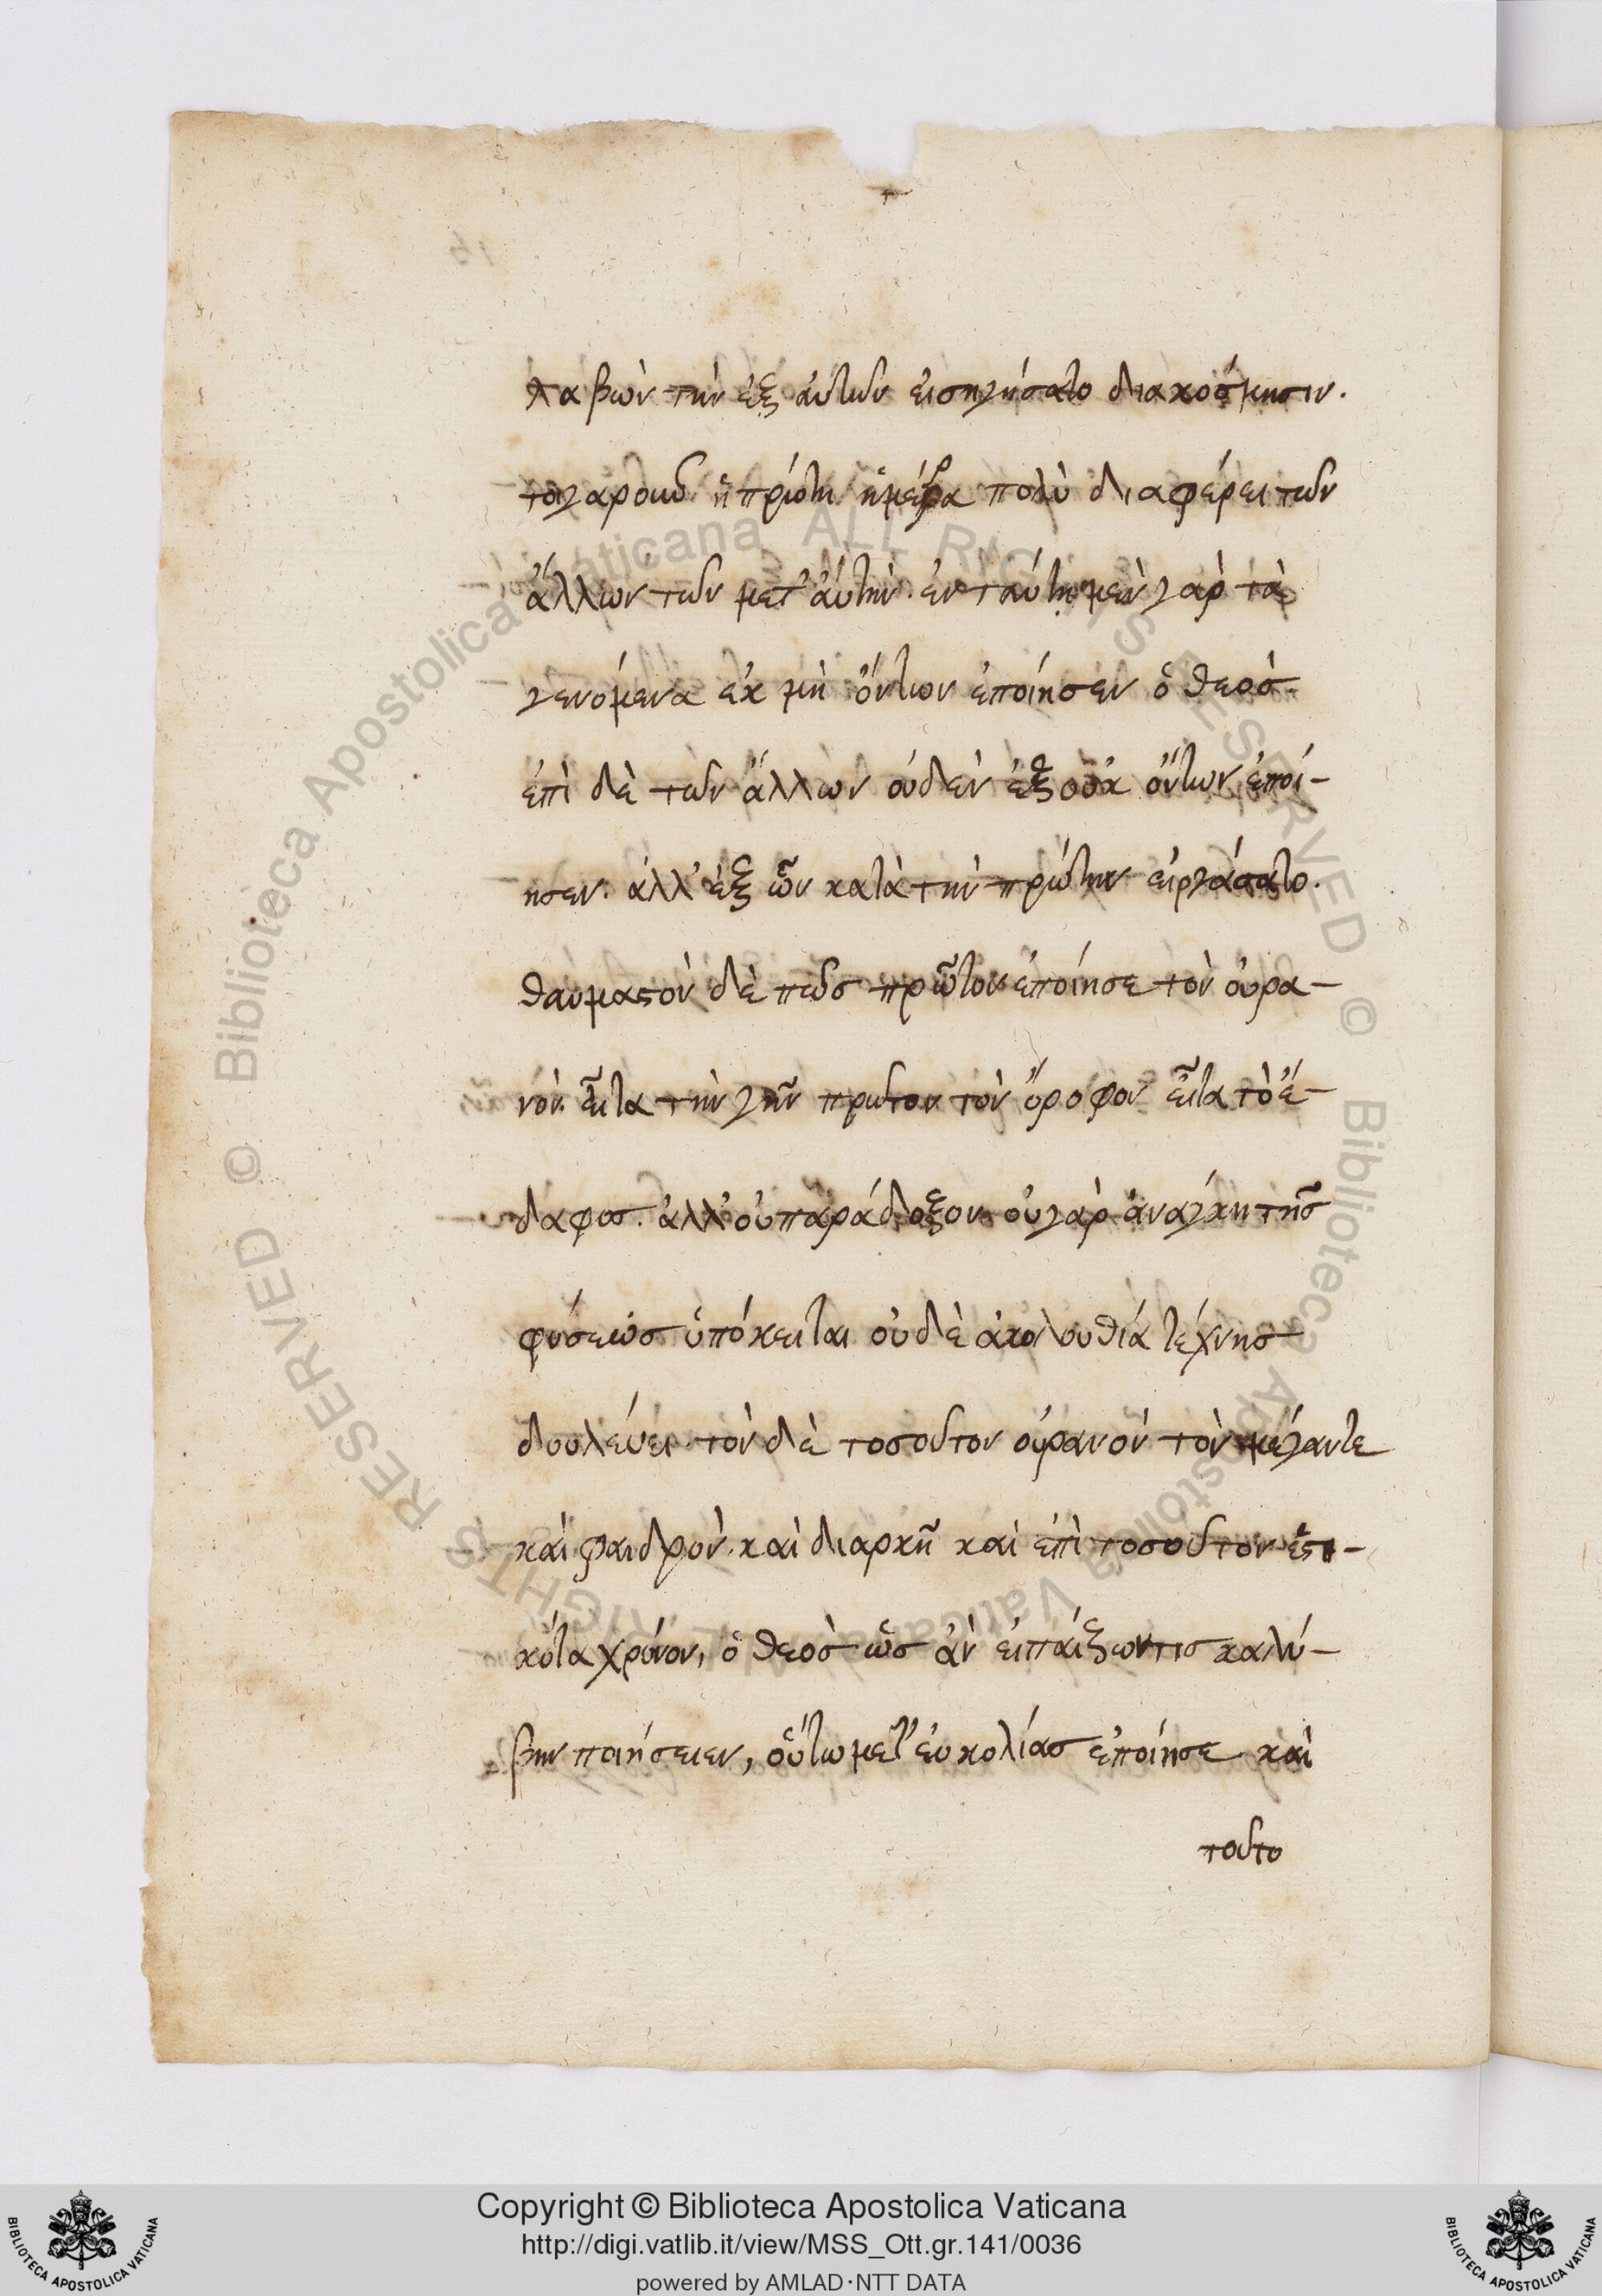 λαβὼν τὴν ἐξ αὐτῶν εἰσηγήσατο διακόσμησιν.
τοιγαροῦν ἡ πρώτη ἡμέρα πολὺ διαφέρει τῶν
ἄλλων τῶν μετ' αὐτήν. ἐν ταύτῃ μὲν γὰρ τὰ
γενόμενα ἐκ μὴ ὄντων ἐποίησεν ὁ θεὸσ.
ἐπὶ δὲ τῶν ἄλλων οὐδὲν ἐξ οὐκ ὄντων ἐποί-
ησεν. ἀλλ' ἐξ ὧν κατὰ τὴν πρώτην εἰργάσατο.
θαυμαστὸν δὲ πῶσ πρῶτον ἐποίησε τὸν οὐρα-
νὸν. εἶτα τὴν γῆν πρωτον τὸν ὄροφον εἶτα τὸ ἔ-
δαφοσ. ἀλλ' οὐ παράδοξον. οὐ γὰρ ἀνάγκη τῆσ
φύσεωσ ὑπόκειται οὐδὲ ἀκολουθία τέχνησ
δουλεύει. τὸν δὲ τοσοῦτον οὐρανὸν τὸν μέγαντε
καὶ φαιδρὸν. καὶ διαρκῆ καὶ ἐπὶ τοσοῦτον ἑστη-
κότα χρόνον, ὁ θεὸσ ὡσ ἂν εἰ παίξων τισ καλύ-
βην ποιήσειεν, οὕτω μετ' εὐκολίασ ἐποίησε καὶ
τοῦτο
Copyright © Biblioteca Apostolica Vaticana
http://digi.vatlib.it/view/MSS_Ott.gr.141/0036
powered by AMLAD·NTT DATA
BIBLIOTECA APOSTOLICA VATICANA
BIBLIOTECA APOSTOLICA VATICANA
© Biblioteca Apostolica Vaticana ALL RIGHTS RESERVED
© Biblioteca Apostolica Vaticana ALL RIGHTS RESERVED